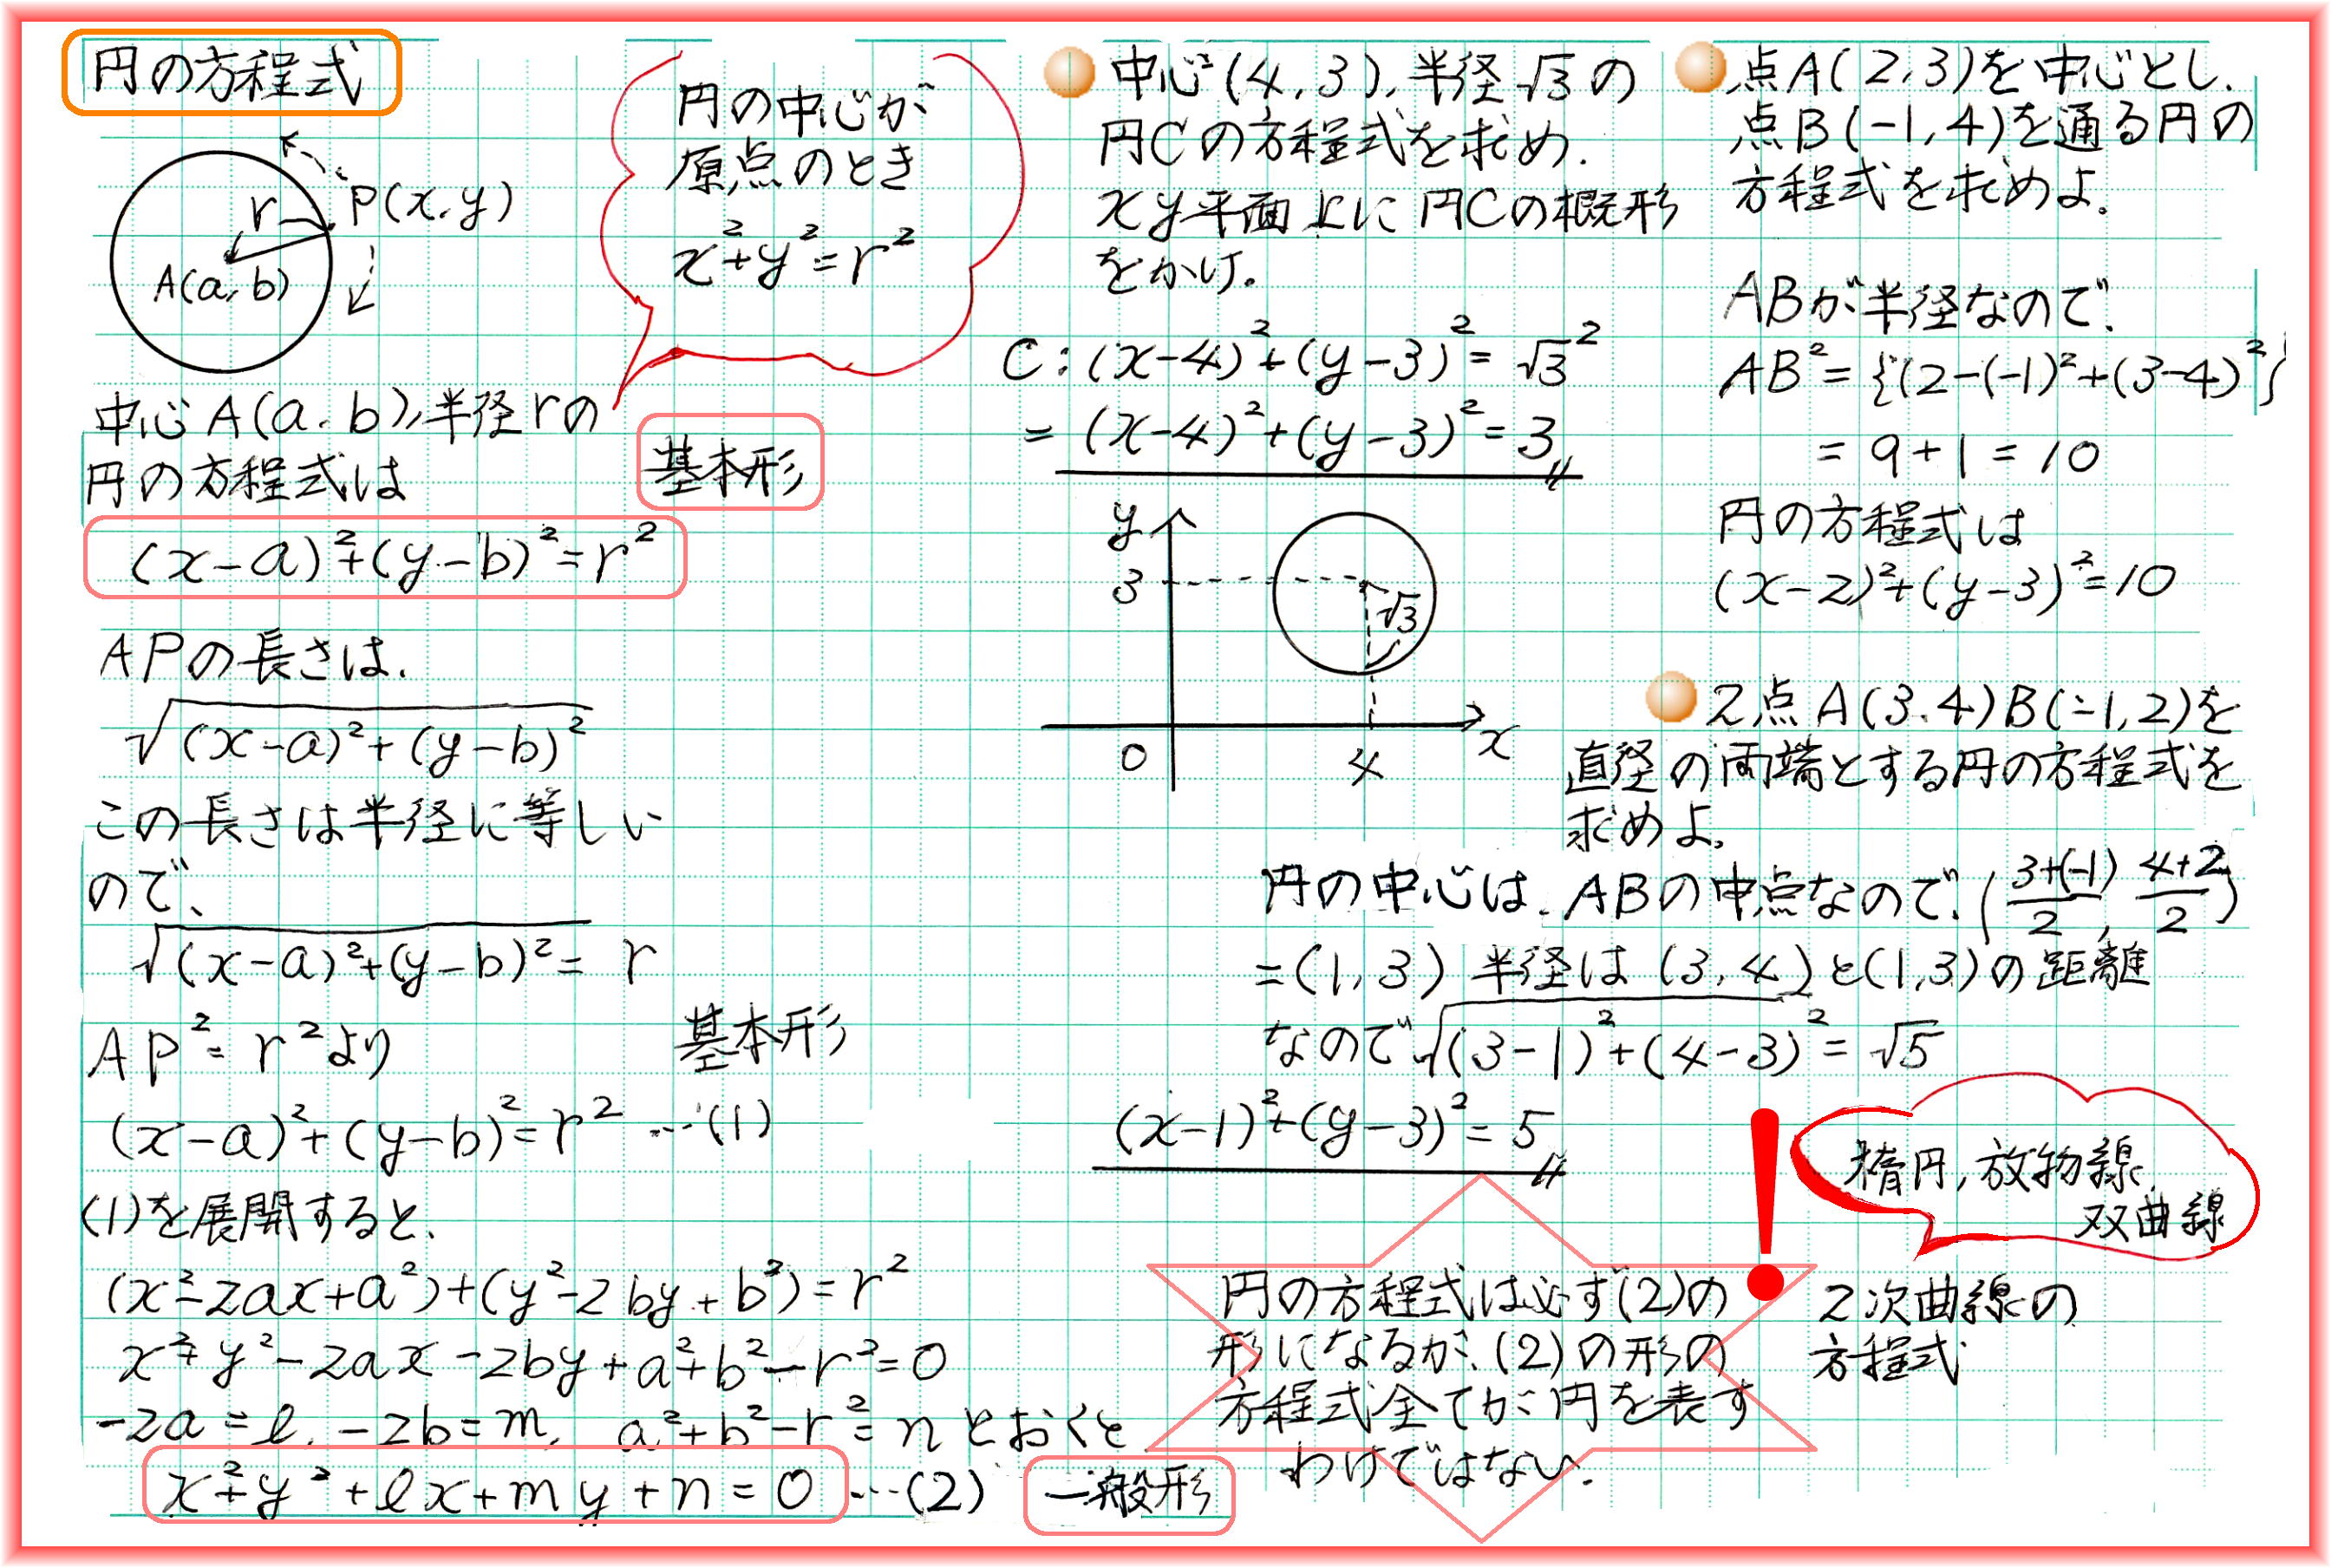 円の方程式
P(x,y)
r
A(a,b)
円の中心が
原点のとき
x²+y²=r²
中心A(a,b),半径rの
円の方程式は
基本形
(x-a)²+(y-b)²=r²
APの長さは、
√(x-a)²+(y-b)²
この長さは半径に等しい
ので、
√(x-a)²+(y-b)²= r
AP²=r²より
基本形
(x-a)²+(y-b)²=r² …(1)
(1)を展開すると、
(x²-2ax+a²)+(y²-2by+b²)=r²
x²+y²-2ax-2by+a²+b²-r²=0
-2a=l, -2b=m, a²+b²-r²=nとおくと
x²+y²+lx+my+n=0 …(2) 一般形
中心(4,3),半径√3の
円Cの方程式を求め、
xy平面上に円Cの概形
をかけ。
C:(x-4)²+(y-3)²=√3²
=(x-4)²+(y-3)²=3
y
3
√3
0
4
x
点A(2,3)を中心とし、
点B(-1,4)を通る円の
方程式を求めよ。
ABが半径なので、
AB²={(2-(-1)²+(3-4)²}
=9+1=10
円の方程式は
(x-2)²+(y-3)²=10
2点A(3,4)B(-1,2)を
直径の両端とする円の方程式を
求めよ。
円の中心は、ABの中点なので、(3+(-1)/2, 4+2/2)
=(1,3) 半径は(3,4)と(1,3)の距離
なので√(3-1)²+(4-3)²=√5
(x-1)²+(y-3)²=5
円の方程式は必ず(2)の
形になるが、(2)の形の
方程式全てが円を表す
わけではない。
!
楕円,放物線,
双曲線
2次曲線の
方程式